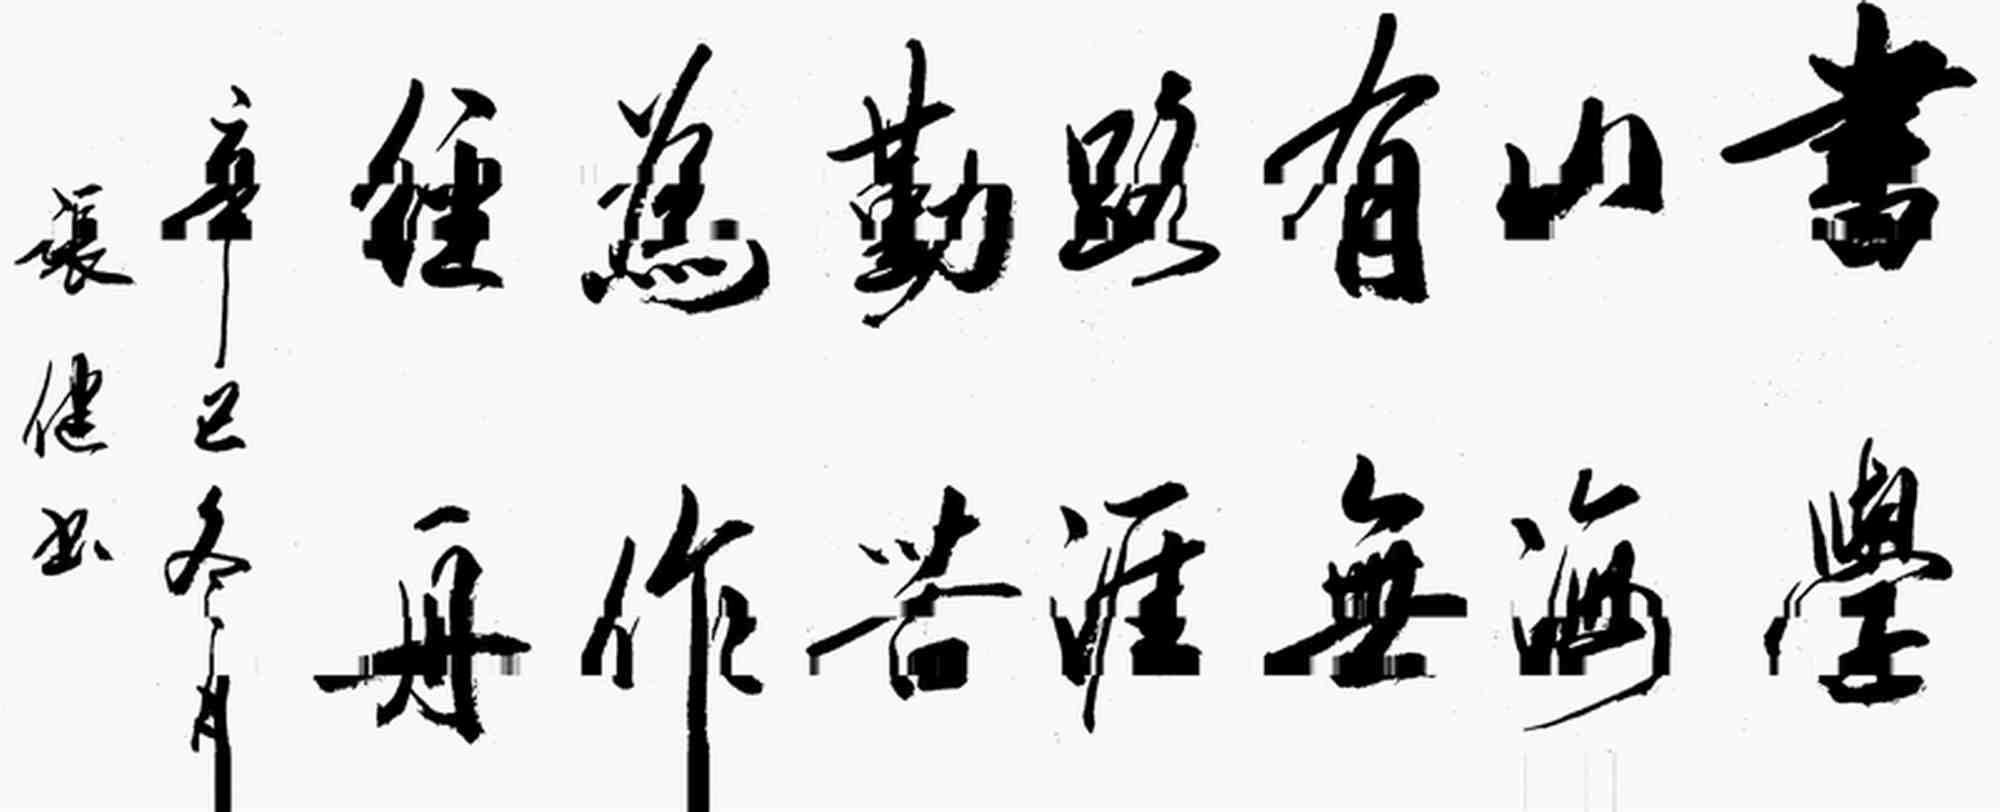 書山有路勤為徑
學海無涯苦作舟
辛巳冬月
張健书